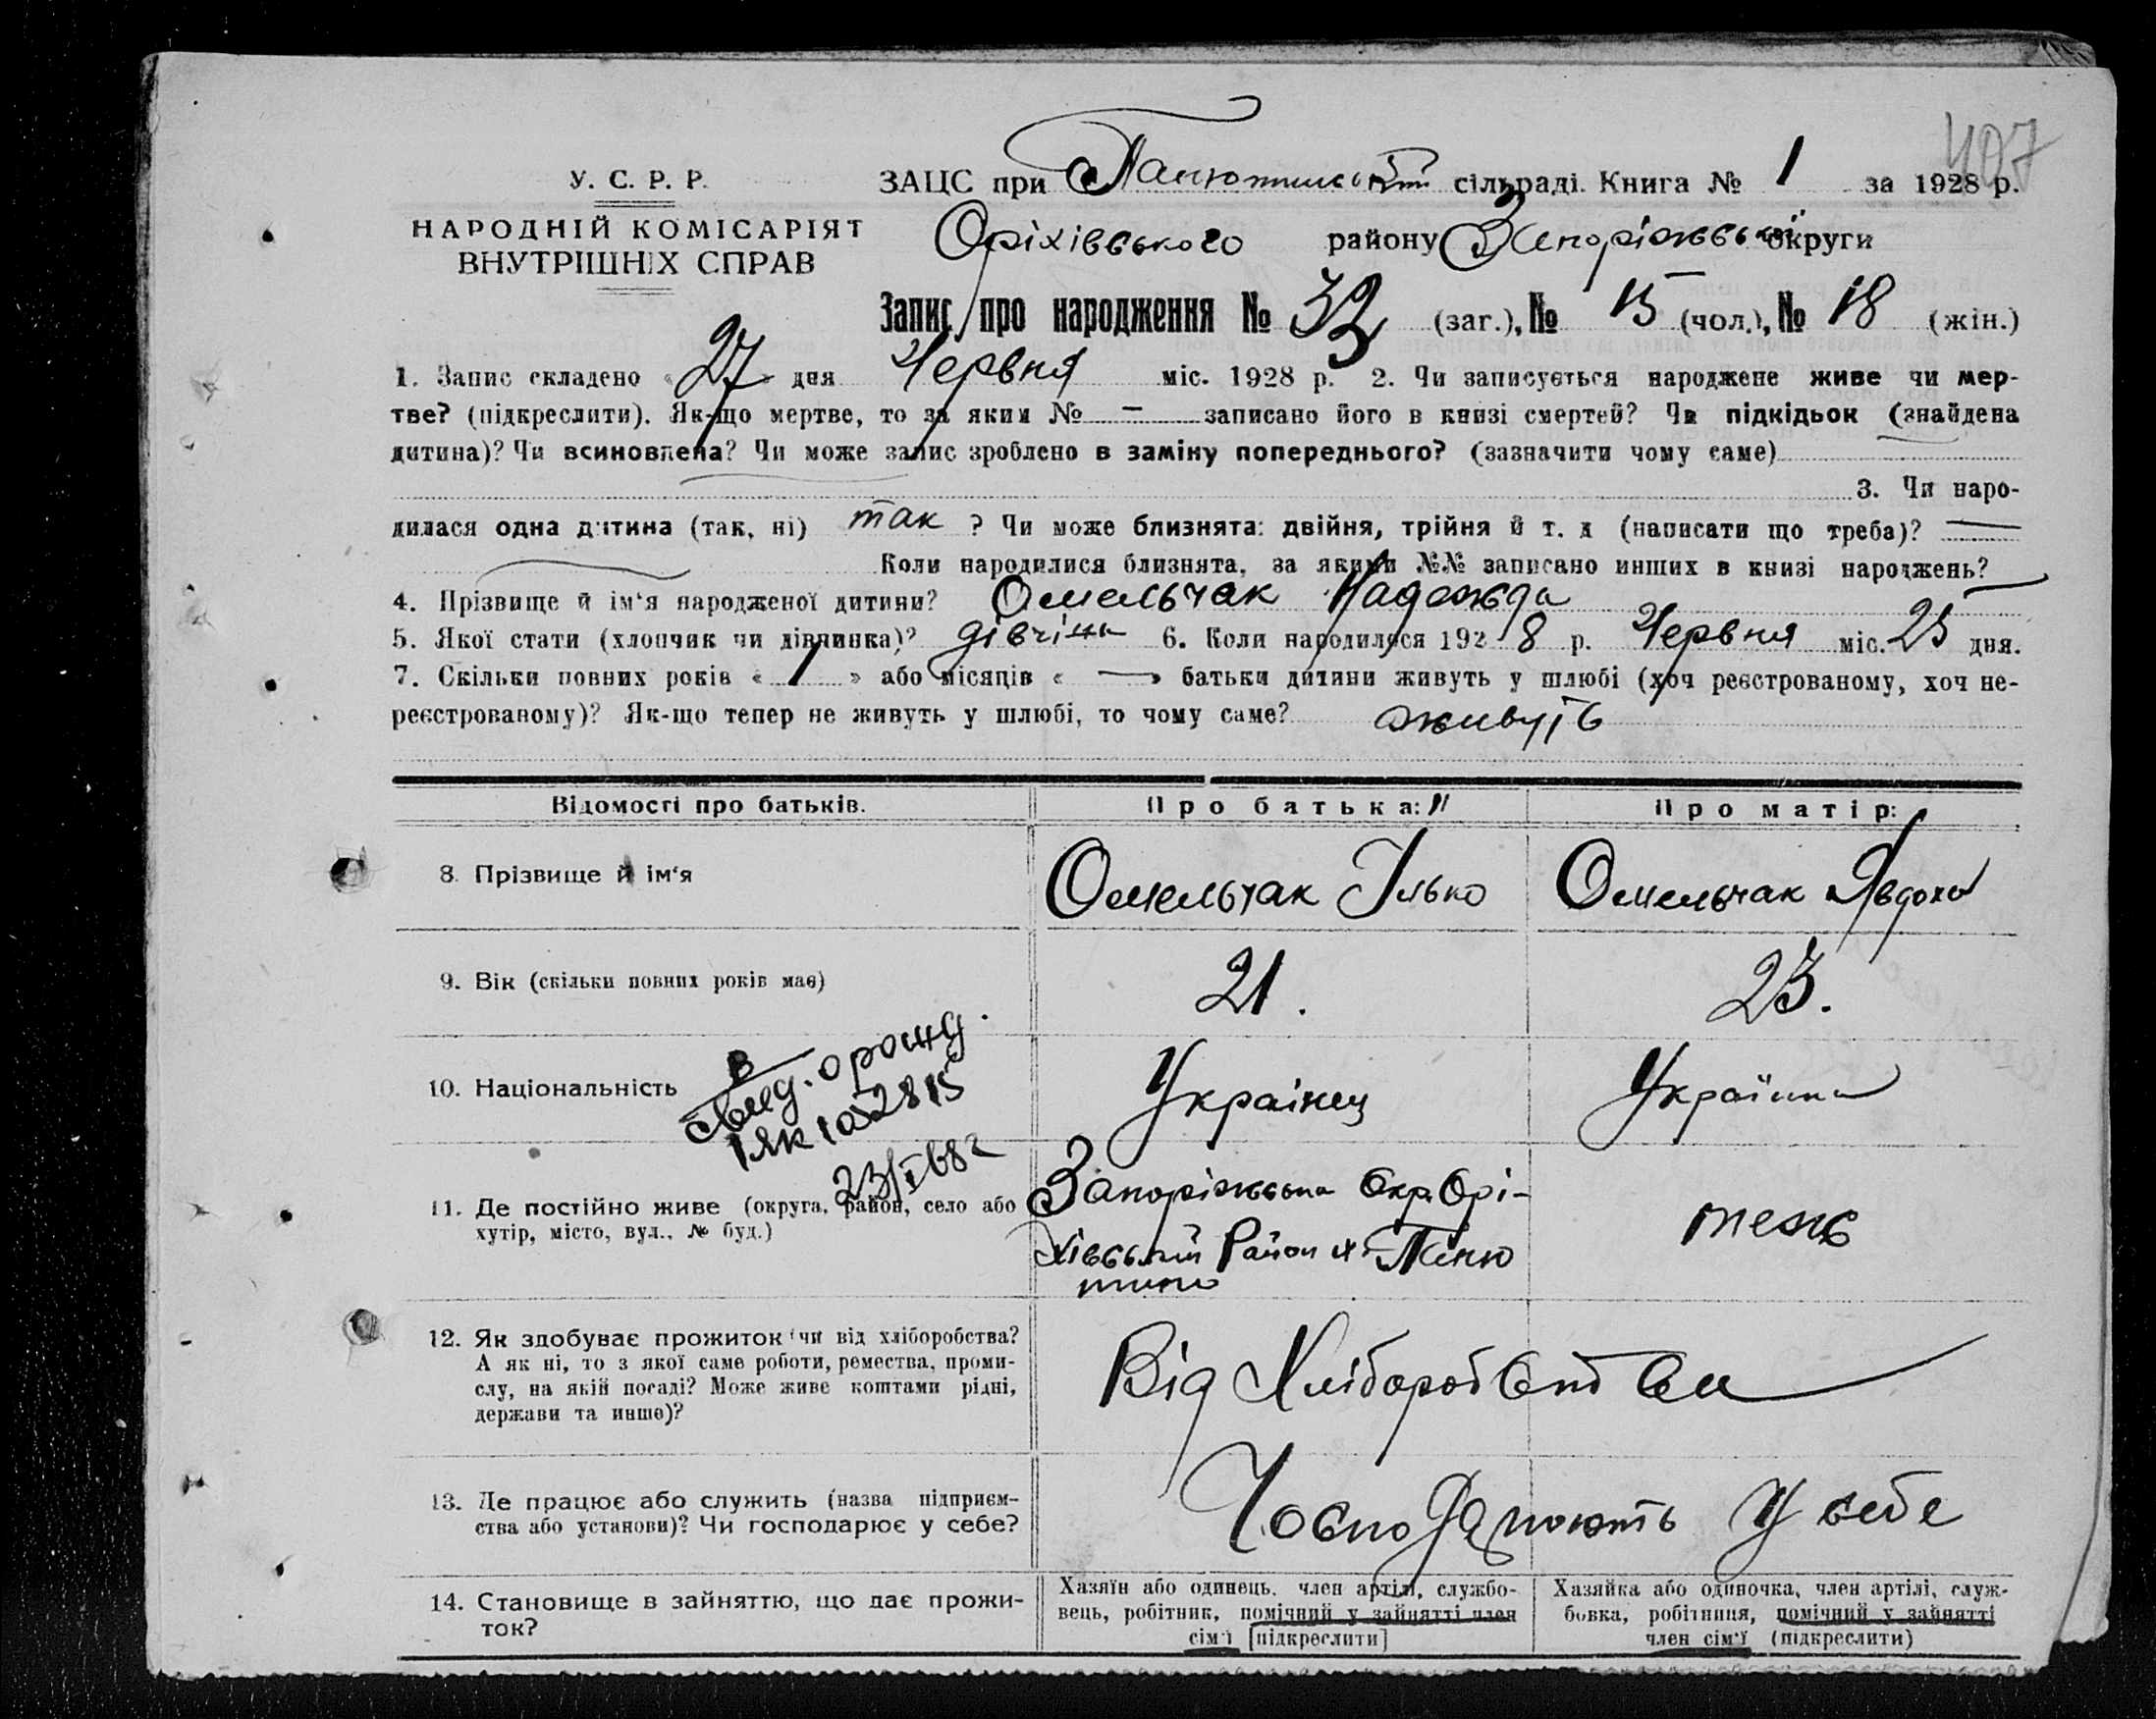 407
У. С. Р. Р.
НАРОДНІЙ КОМІСАРІЯТ
ВНУТРІШНІХ СПРАВ
ЗАЦС при Панютинській сільраді. Книга № 1 за 1928 р.
Оріхівського району Запоріжської округи
Запис про народження № 32 (заг.), № 15 (чол.), № 18 (жін.)
3
1. Запис складено « 27 » дня Червня міс. 1928 р. 2. Чи записується народжене живе чи мер-
тве? (підкреслити). Як-що мертве, то за яким № — записано його в книзі смертей? Чи підкідьок (знайдена
дитина)? Чи всиновлена? Чи може запис зроблено в заміну попереднього? (зазначити чому саме)
3. Чи наро-
дилася одна дитина (так, ні) так ? Чи може близнята: двійня, трійня й т. д (написати що треба)? —
Коли народилися близнята, за якими №№ записано инших в книзі народжень?
4. Прізвище й ім‘я народженої дитини? Омельчак Надежда
5. Якої стати (хлопчик чи дівчинка)? дівчіна 6. Коли народилося 192 8 р. Червня міс. 25 дня.
7. Скільки повних років « 1 » або місяців « — » батьки дитини живуть у шлюбі (хоч реєстрованому, хоч не-
реєстрованому)? Як-що тепер не живуть у шлюбі, то чому саме? живуть
Відомості про батьків. Про батька: Про матір:
8. Прізвище й ім‘я Омельчак Ілько Омельчак Явдоха
9. Вік (скільки повних років має) 21. 23.
10. Національність Українец Українка
В
свид. о рожд.
І ЯК 1052815
23/І 68 г
11. Де постійно живе (округа, район, село або
хутір, місто, вул., № буд.)
Запоріжська Окр. Орі-
хівський Район х. Паню
тино
теж
12. Як здобуває прожиток (чи від хліборобства?
А як ні, то з якої саме роботи, ремества, проми-
слу, на якій посаді? Може живе коштами рідні,
держави та инше)?
Від Хліборобства
13. Де працює або служить (назва підприєм-
ства або установи)? Чи господарює у себе?
Господарюють У себе
14. Становище в зайняттю, що дає прожи-
ток?
Хазяїн або одинець, член артілі, службо-
вець, робітник, помічний у зайнятті член
сім‘ї [підкреслити]
Хазяйка або одиночка, член артілі, служ-
бовка, робітниця, помічний у зайнятті
член сім‘ї (підкреслити)